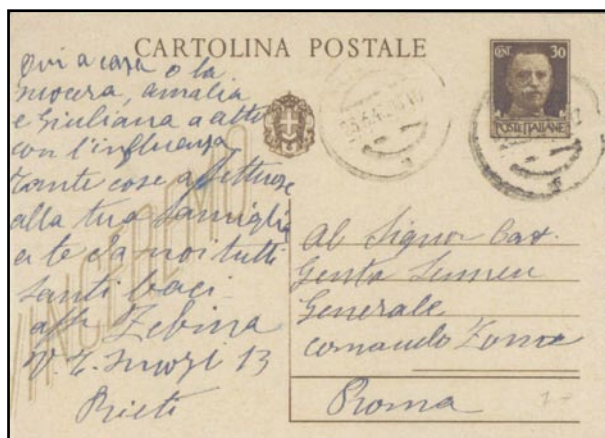 CARTOLINA POSTALE
CENT. 30
POSTE ITALIANE
VINCEREMO
qui a casa o la
suocera, amalia
e Giuliana a atto
con l'influenza
Tante cose affettuose
alla tua famiglia
a te da noi tutti
santi baci
aff. Zebina
13
Rieti
Al Signor
Genta
Generale
Comando Zona
Roma